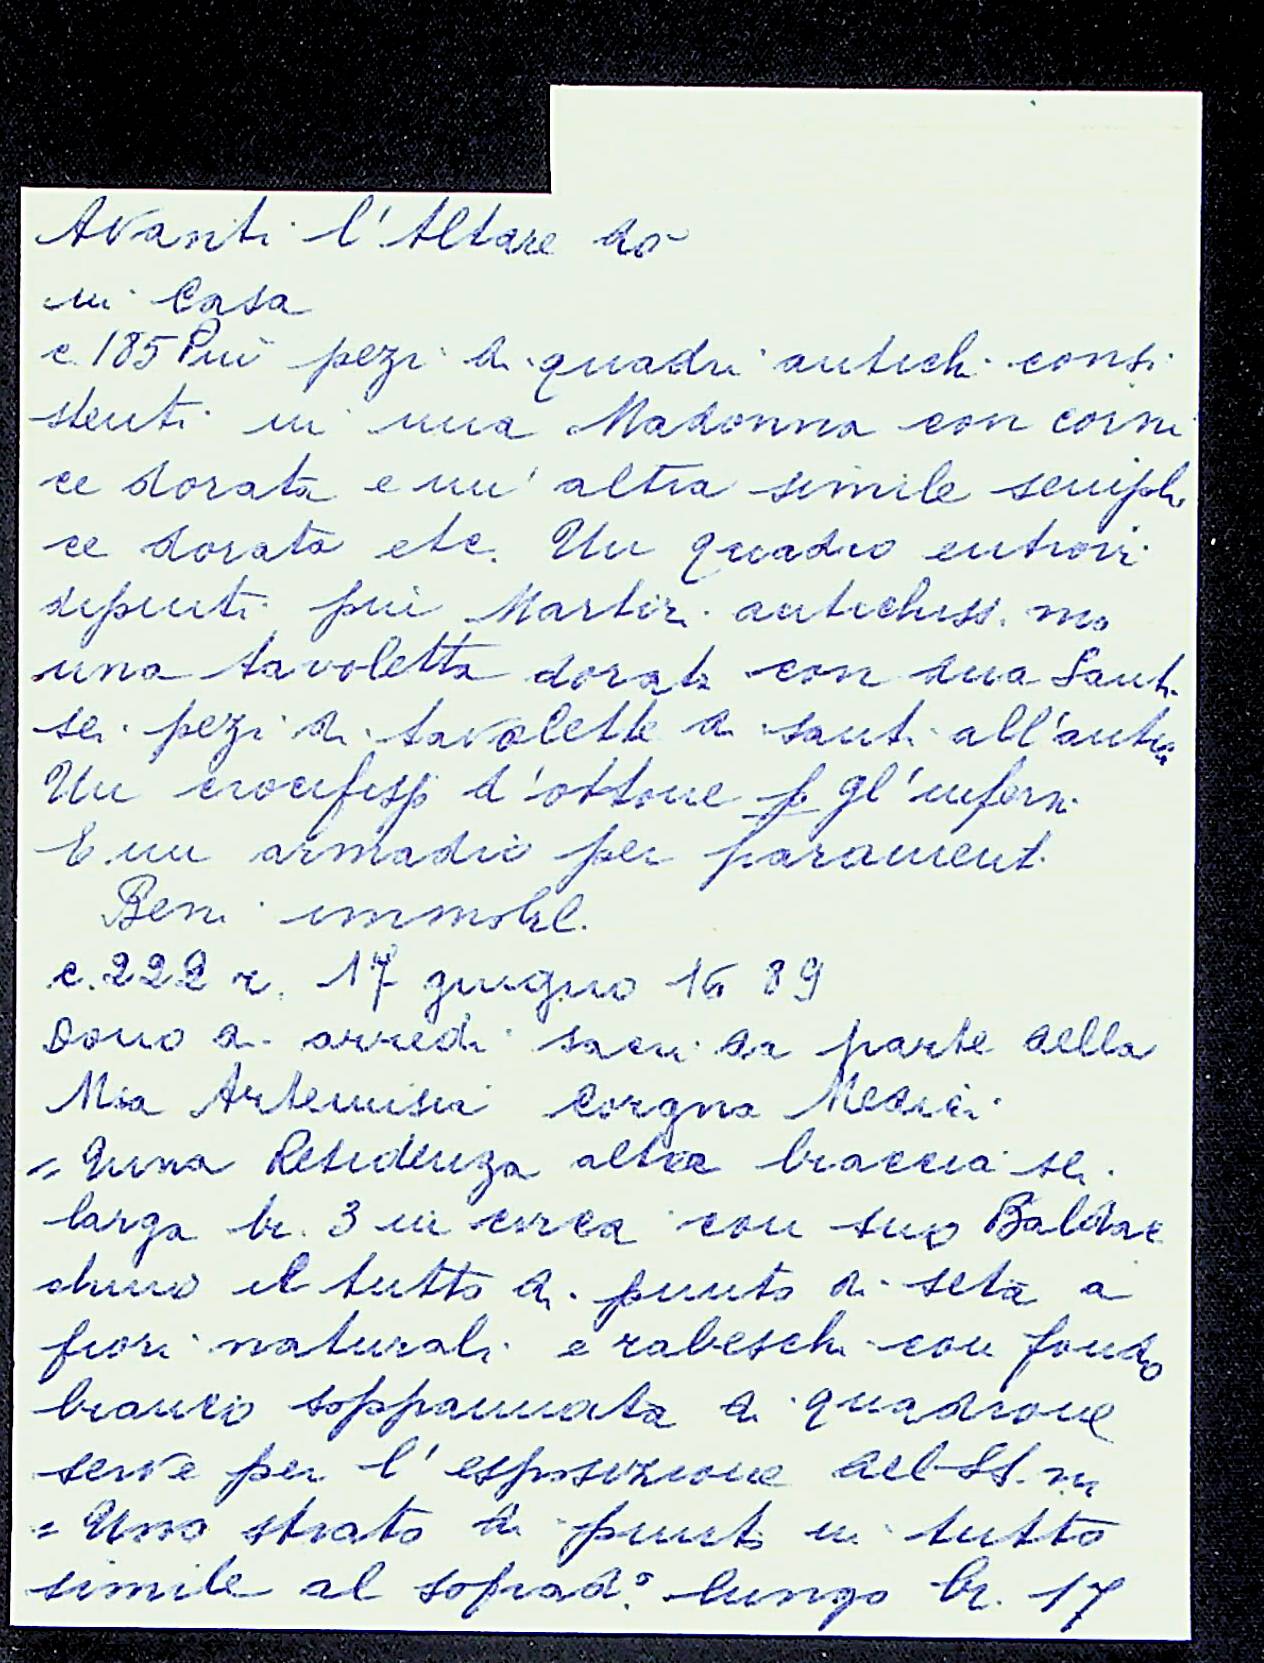 Avanti l'Altare do
in Casa
c. 185 Più pezi di quadri antichi consi
stenti in una Madonna con corni
ce dorata e un' altra simile sempli
ce dorata etc. Un quadro entrovi
dipinti più Martiri antichiss. mo
una tavoletta dorata con dua Santi
sei pezi di tavolette di santi all'antica
Un crocifisso d'ottone p gl'infermi
E un armadio per paramenti
Beni immobil.
c. 222 r. 17 giugno 1689
Dono di arredi sacri da parte della
Mia Artemisia Corgna Medici
= Una Residenza alta braccia sei
larga br. 3 in circa con suo Baldac
chino il tutto di punto di seta a
fiori naturali e rabeschi con fondo
bianco soppannata di quadrone
serve per l'esposizione del SS. m
= Uno strato di punto in tutto
simile al soprad.º lungo br. 17